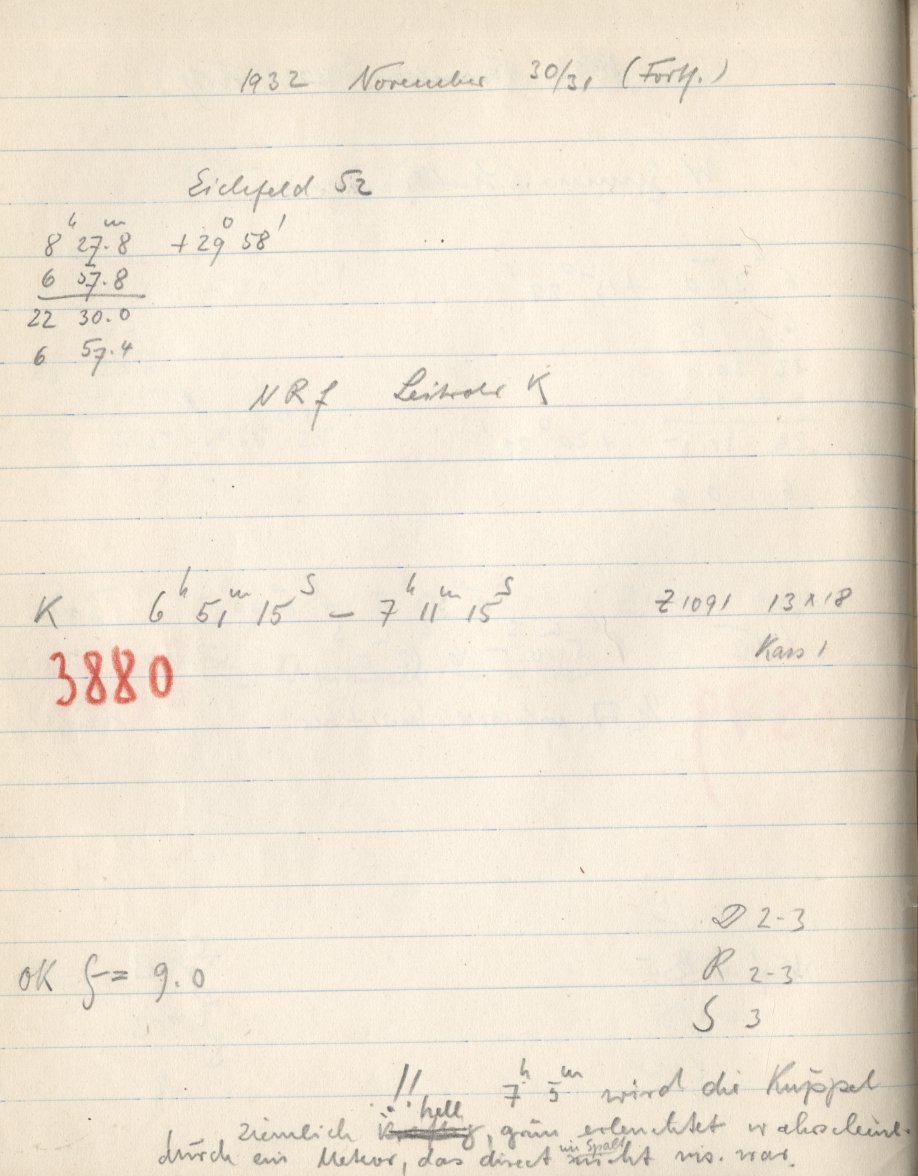 1932 November 30/31 (Fortf.)
Eichfeld 52
8h 27m.8 +29° 58'
6 57.8
22 30.0
6 57.4
NRf K
K 6h 51m 15s – 7h 11m 15s Z1091 13×18
Kass 1
3880
D 2-3
OK = 9.0
R 2-3
S 3
!! 7h 5m wird die Kuppel
ziemlich hell, grün erleuchtet wahrscheinl.
durch ein Meteor, das direct im Spalt nicht vis. war.